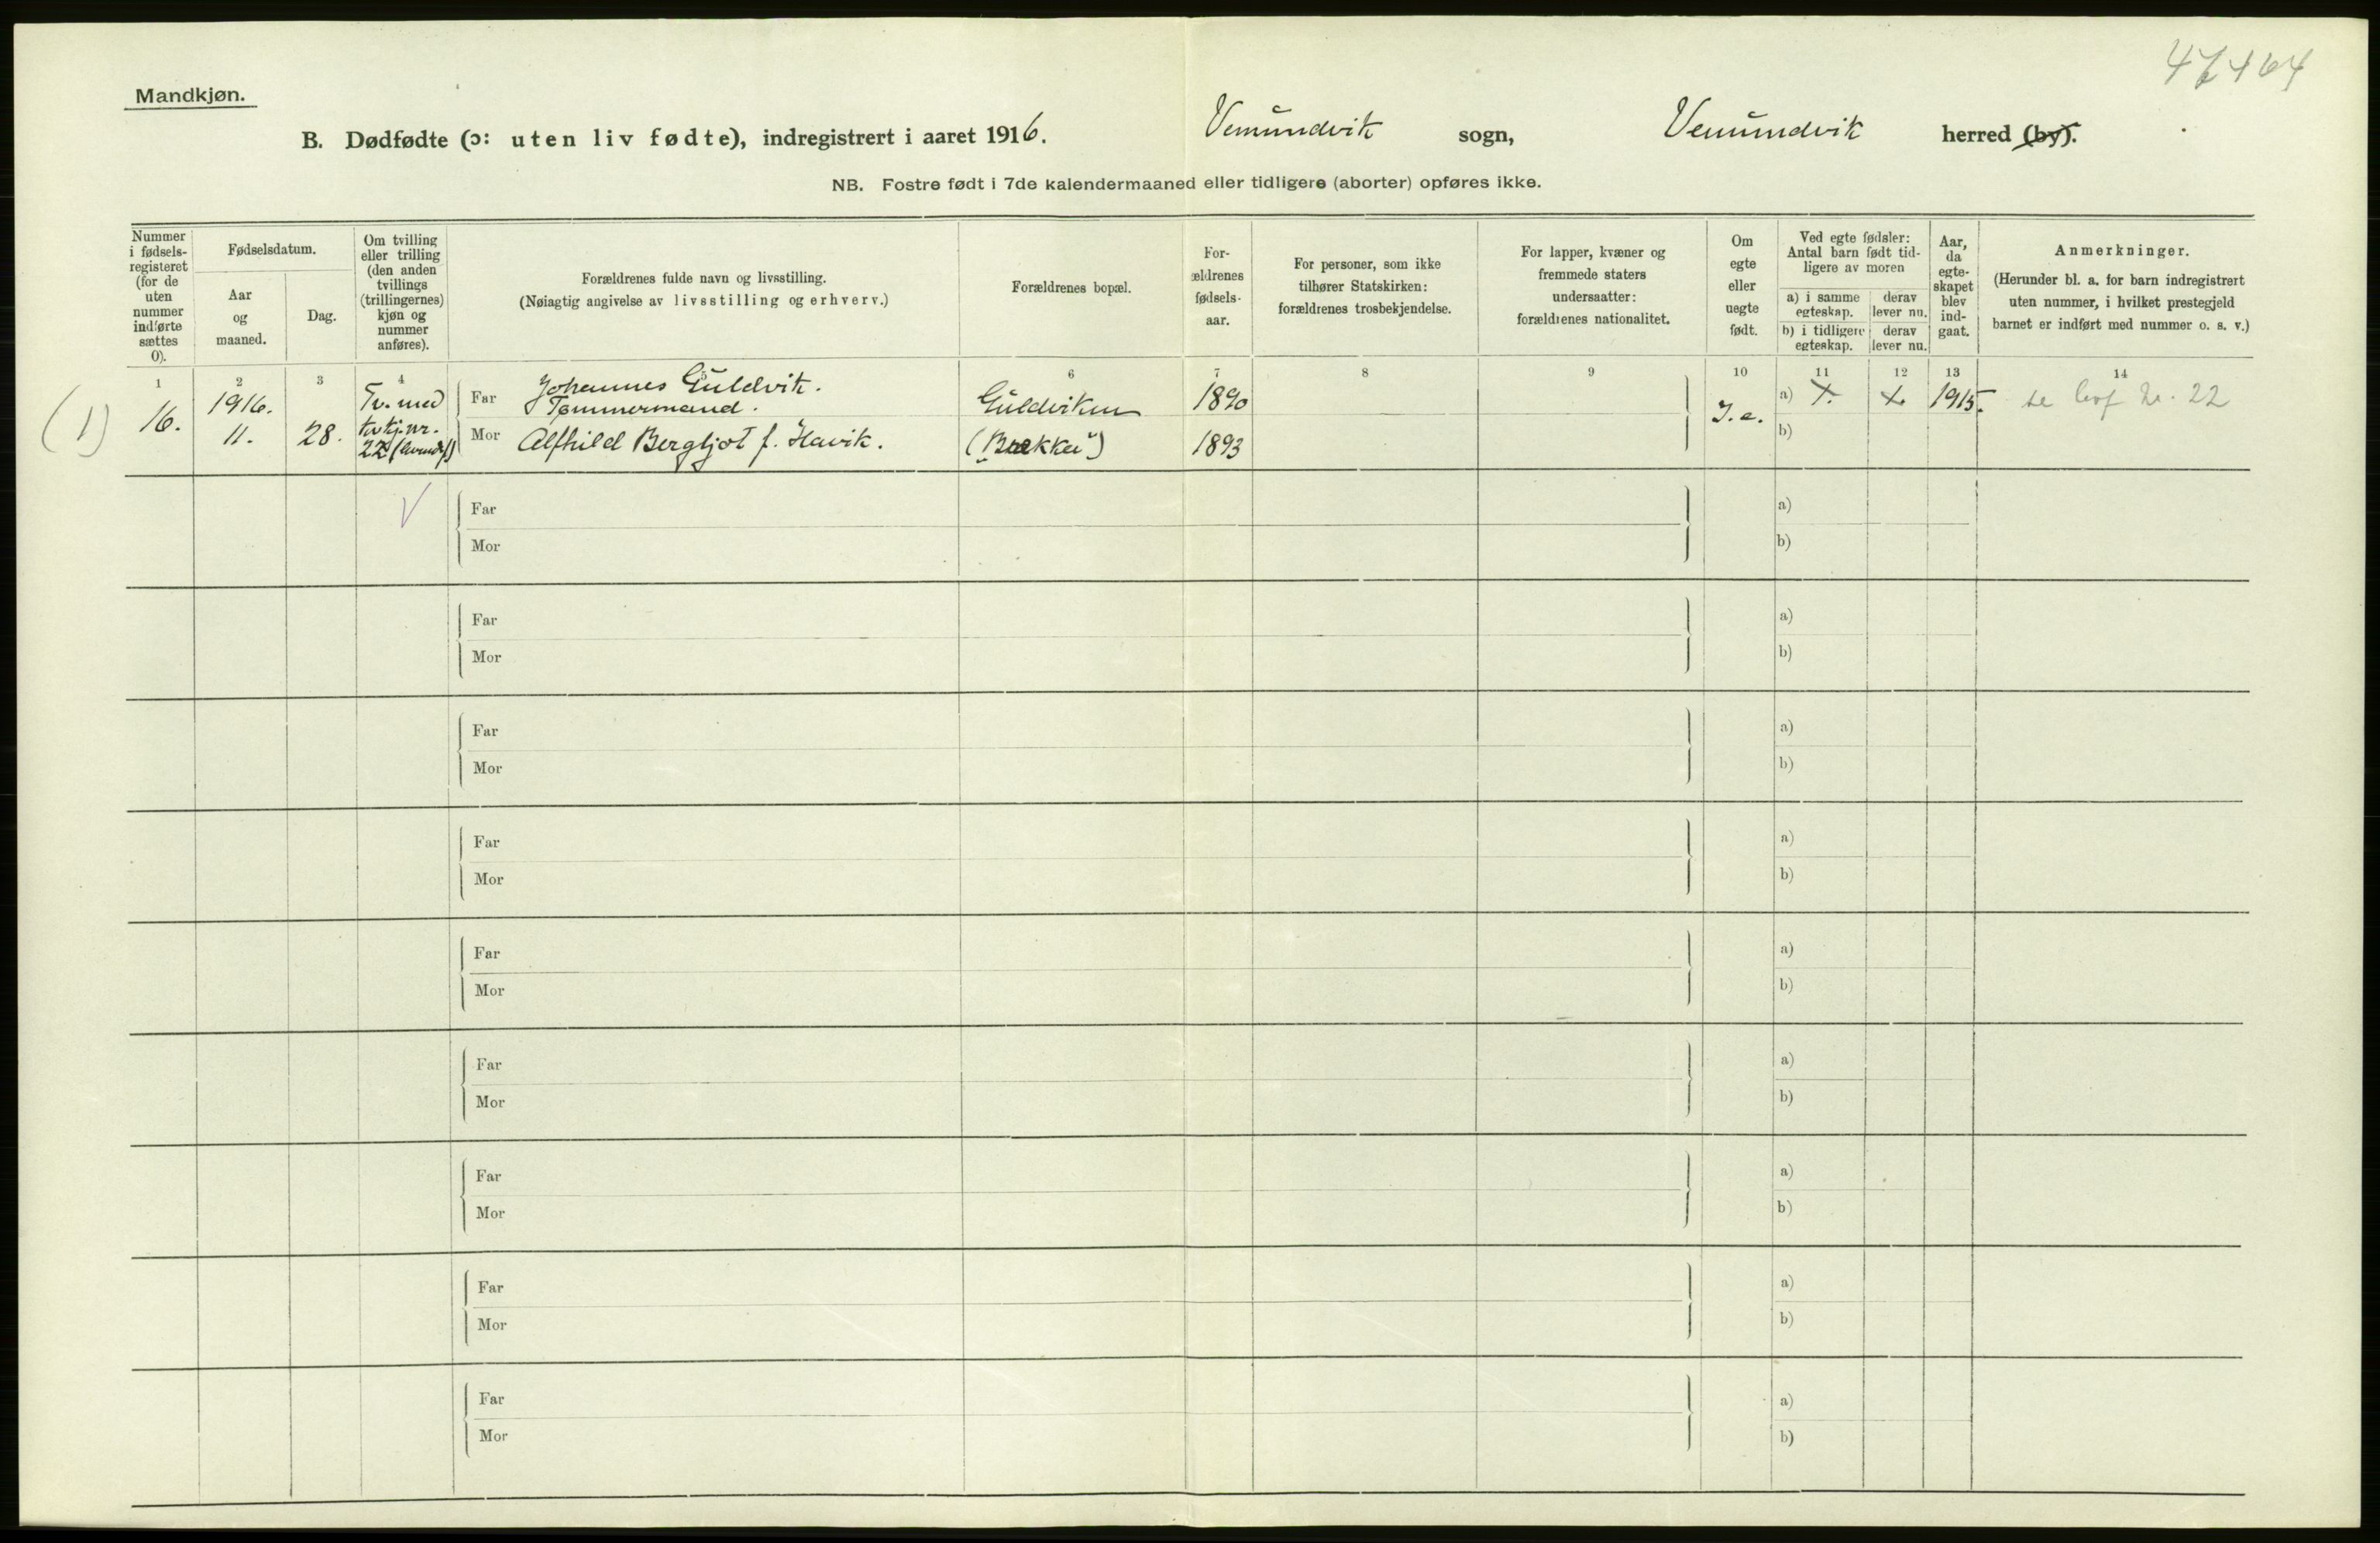 Mandkjøn.
B. Dødfødte (ɔ: uten liv fødte), indregistrert i aaret 1916. Vemundvik sogn, Vemundvik herred (by).
NB. Fostre født i 7de kalendermaaned eller tidligere (aborter) opføres ikke.
Nummer
i fødsels-
registeret
(for de
uten
nummer
indførte
sættes
0).
Fødselsdatum.
Aar
og
maaned.
Dag.
Om tvilling
eller trilling
(den anden
tvillings
(trillingernes)
kjøn og
nummer
anføres).
Forældrenes fulde navn og livsstilling.
(Nøiagtig angivelse av livsstilling og erhverv.)
Forældrenes bopæl.
For-
ældrenes
fødsels-
aar.
For personer, som ikke
tilhører Statskirken:
forældrenes trosbekjendelse.
For lapper, kvæner og
fremmede staters
undersaatter:
forældrenes nationalitet.
Om
egte
eller
uegte
født.
Ved egte fødsler:
Antal barn født tid-
ligere av moren
a) i samme
egteskap.
derav
lever nu.
b) i tidligere
egteskap.
derav
lever nu.
Aar,
da
egte-
skapet
blev
ind-
gaat.
Anmerkninger.
(Herunder bl. a. for barn indregistrert
uten nummer, i hvilket prestegjeld
barnet er indført med nummer o. s. v.)
1 2 3 4 5 6 7 8 9 10 11 12 13 14
(1)
16.
1916.
11.
28.
Tv. med
kvkj. nr.
22
Far Johannes Guldvik.
Tømmermand.
Mor Alfhild Bergljot f. Havik.
Guldviken
1890
1893
a)
b)
1915.
se levf nr. 22
Far a)
Mor b)
Far a)
Mor b)
Far a)
Mor b)
Far a)
Mor b)
Far a)
Mor b)
Far a)
Mor b)
Far a)
Mor b)
Far a)
Mor b)
Far a)
Mor b)